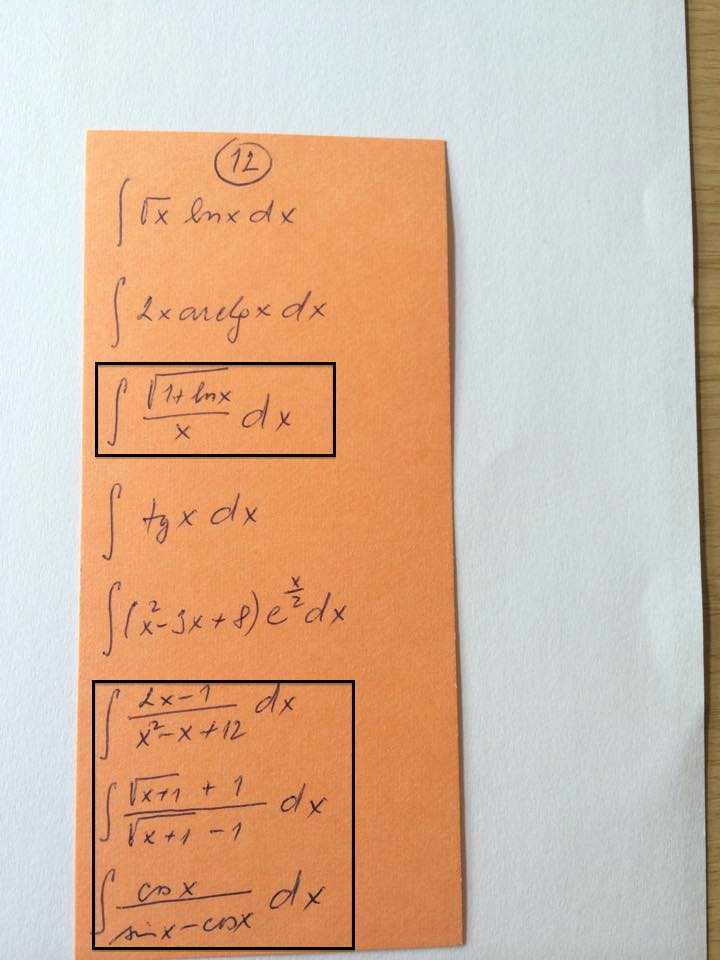 12
∫ √x ln x dx
∫ 2x arctg x dx
∫ √(1+ln x)/x dx
∫ tg x dx
∫ (x²-3x+8) e^(x/2) dx
∫ (2x-1)/(x²-x+12) dx
∫ (√(x+1) + 1)/(√(x+1) - 1) dx
∫ cos x/(sin x - cos x) dx